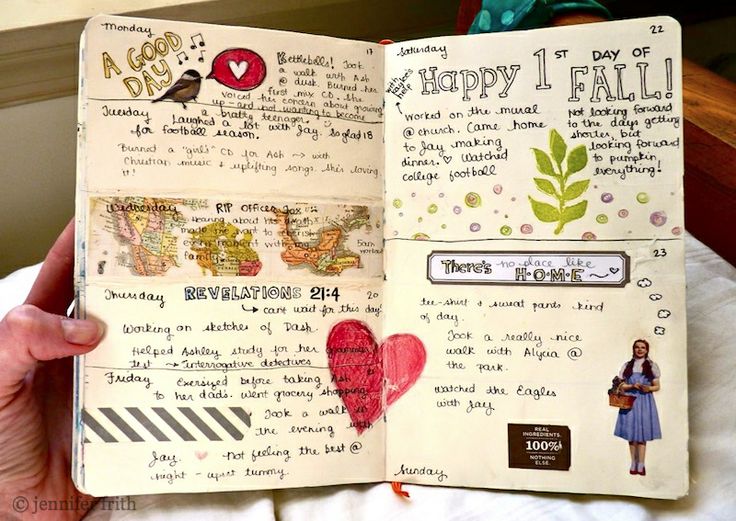 Monday
17
A GOOD
DAY
Kettlebells! Took
a walk with Ash
@ dusk. Burned her
first mix CD. She
voiced her concern about growing
up - and not wanting to become
a bratty teenager.
Tuesday
Laughed a lot with Jay. So glad
18
for football season.
Burned a "girls" CD for Ash → with
Christian music & uplifting songs. She's loving
it!
Wednesday
RIP OFFICER Fox
Hearing about his death
made me want to cherish
every moment with my
family.
Thursday
REVELATIONS 21:4
20
can't wait for this day!
Working on sketches of Dash.
Helped Ashley study for her grammar
test → Interrogative detectives
Friday
Exersized before taking Ash
to her dad's. Went grocery shopping.
Took a walk in
the evening with
Jay.
Not feeling the best @
night - upset tummy.
Saturday
22
with
help
Happy 1ST DAY OF
FALL!
Worked on the mural
@ church. Came home
to Jay making
dinner. ♡ Watched
college football
Not looking forward
to the days getting
shorter, but
looking forward
to pumpkin
everything!
23
There's no place like
H·O·M·E
tee-shirt & sweat pants kind
of day.
Took a really nice
walk with Alycia @
the park.
Watched the Eagles
with Jay
REAL
INGREDIENTS.
100%
NOTHING
ELSE.
Sunday
© jennifer frith